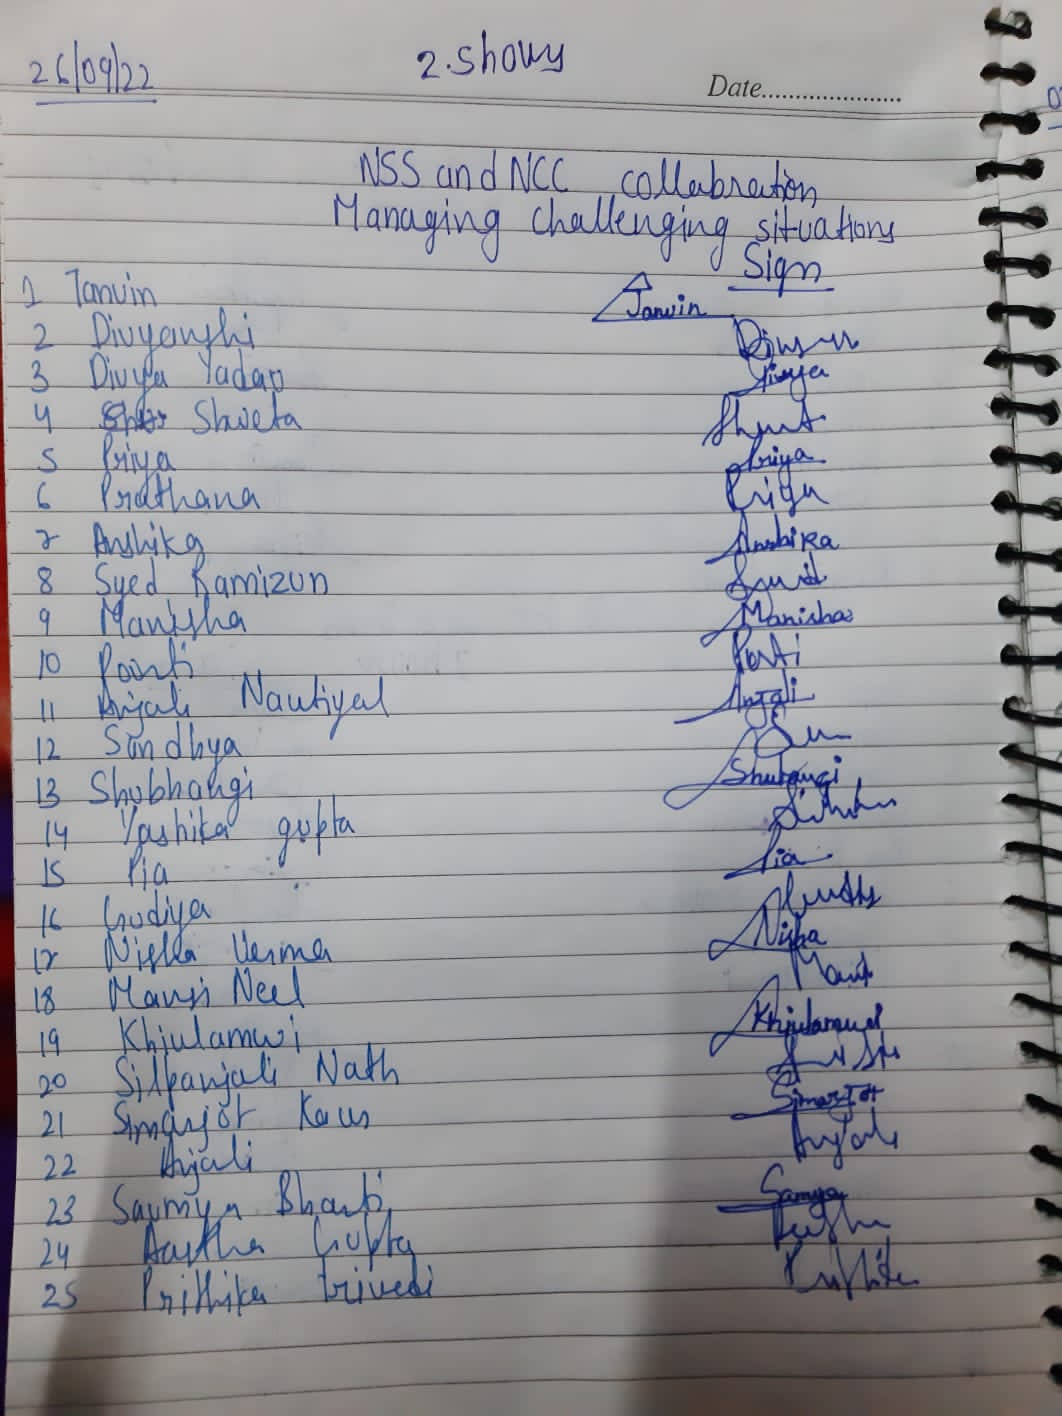 26/09/22 2. Shouy
Date....................
NSS and NCC collabration
Managing challenging situations
Sign
1 Tanvin Tanvin
2 Divyanshi
3 Divya Yadav Divya
4 Shweta
5 Priya Priya
6 Prathana Priya
7 Anshika Anshika
8 Syed Ramizun
9 Manisha Manisha
10 Poorti Porti
11 Anjali Nautiyal Anjali
12 Sandhya
13 Shubhangi Shubangi
14 Yashika gupta
15 Pia Pia
16 Gudiya
17 Nisha Verma Nisha
18 Mansi Neel
19 Khjulamwi Khjulamwi
20 Silpanjali Nath
21 Simarjot Kaur Simarjot
22 Anjali Anjali
23 Saumya Bharti Samya
24 Aastha Gupta
25 Prithika Trivedi